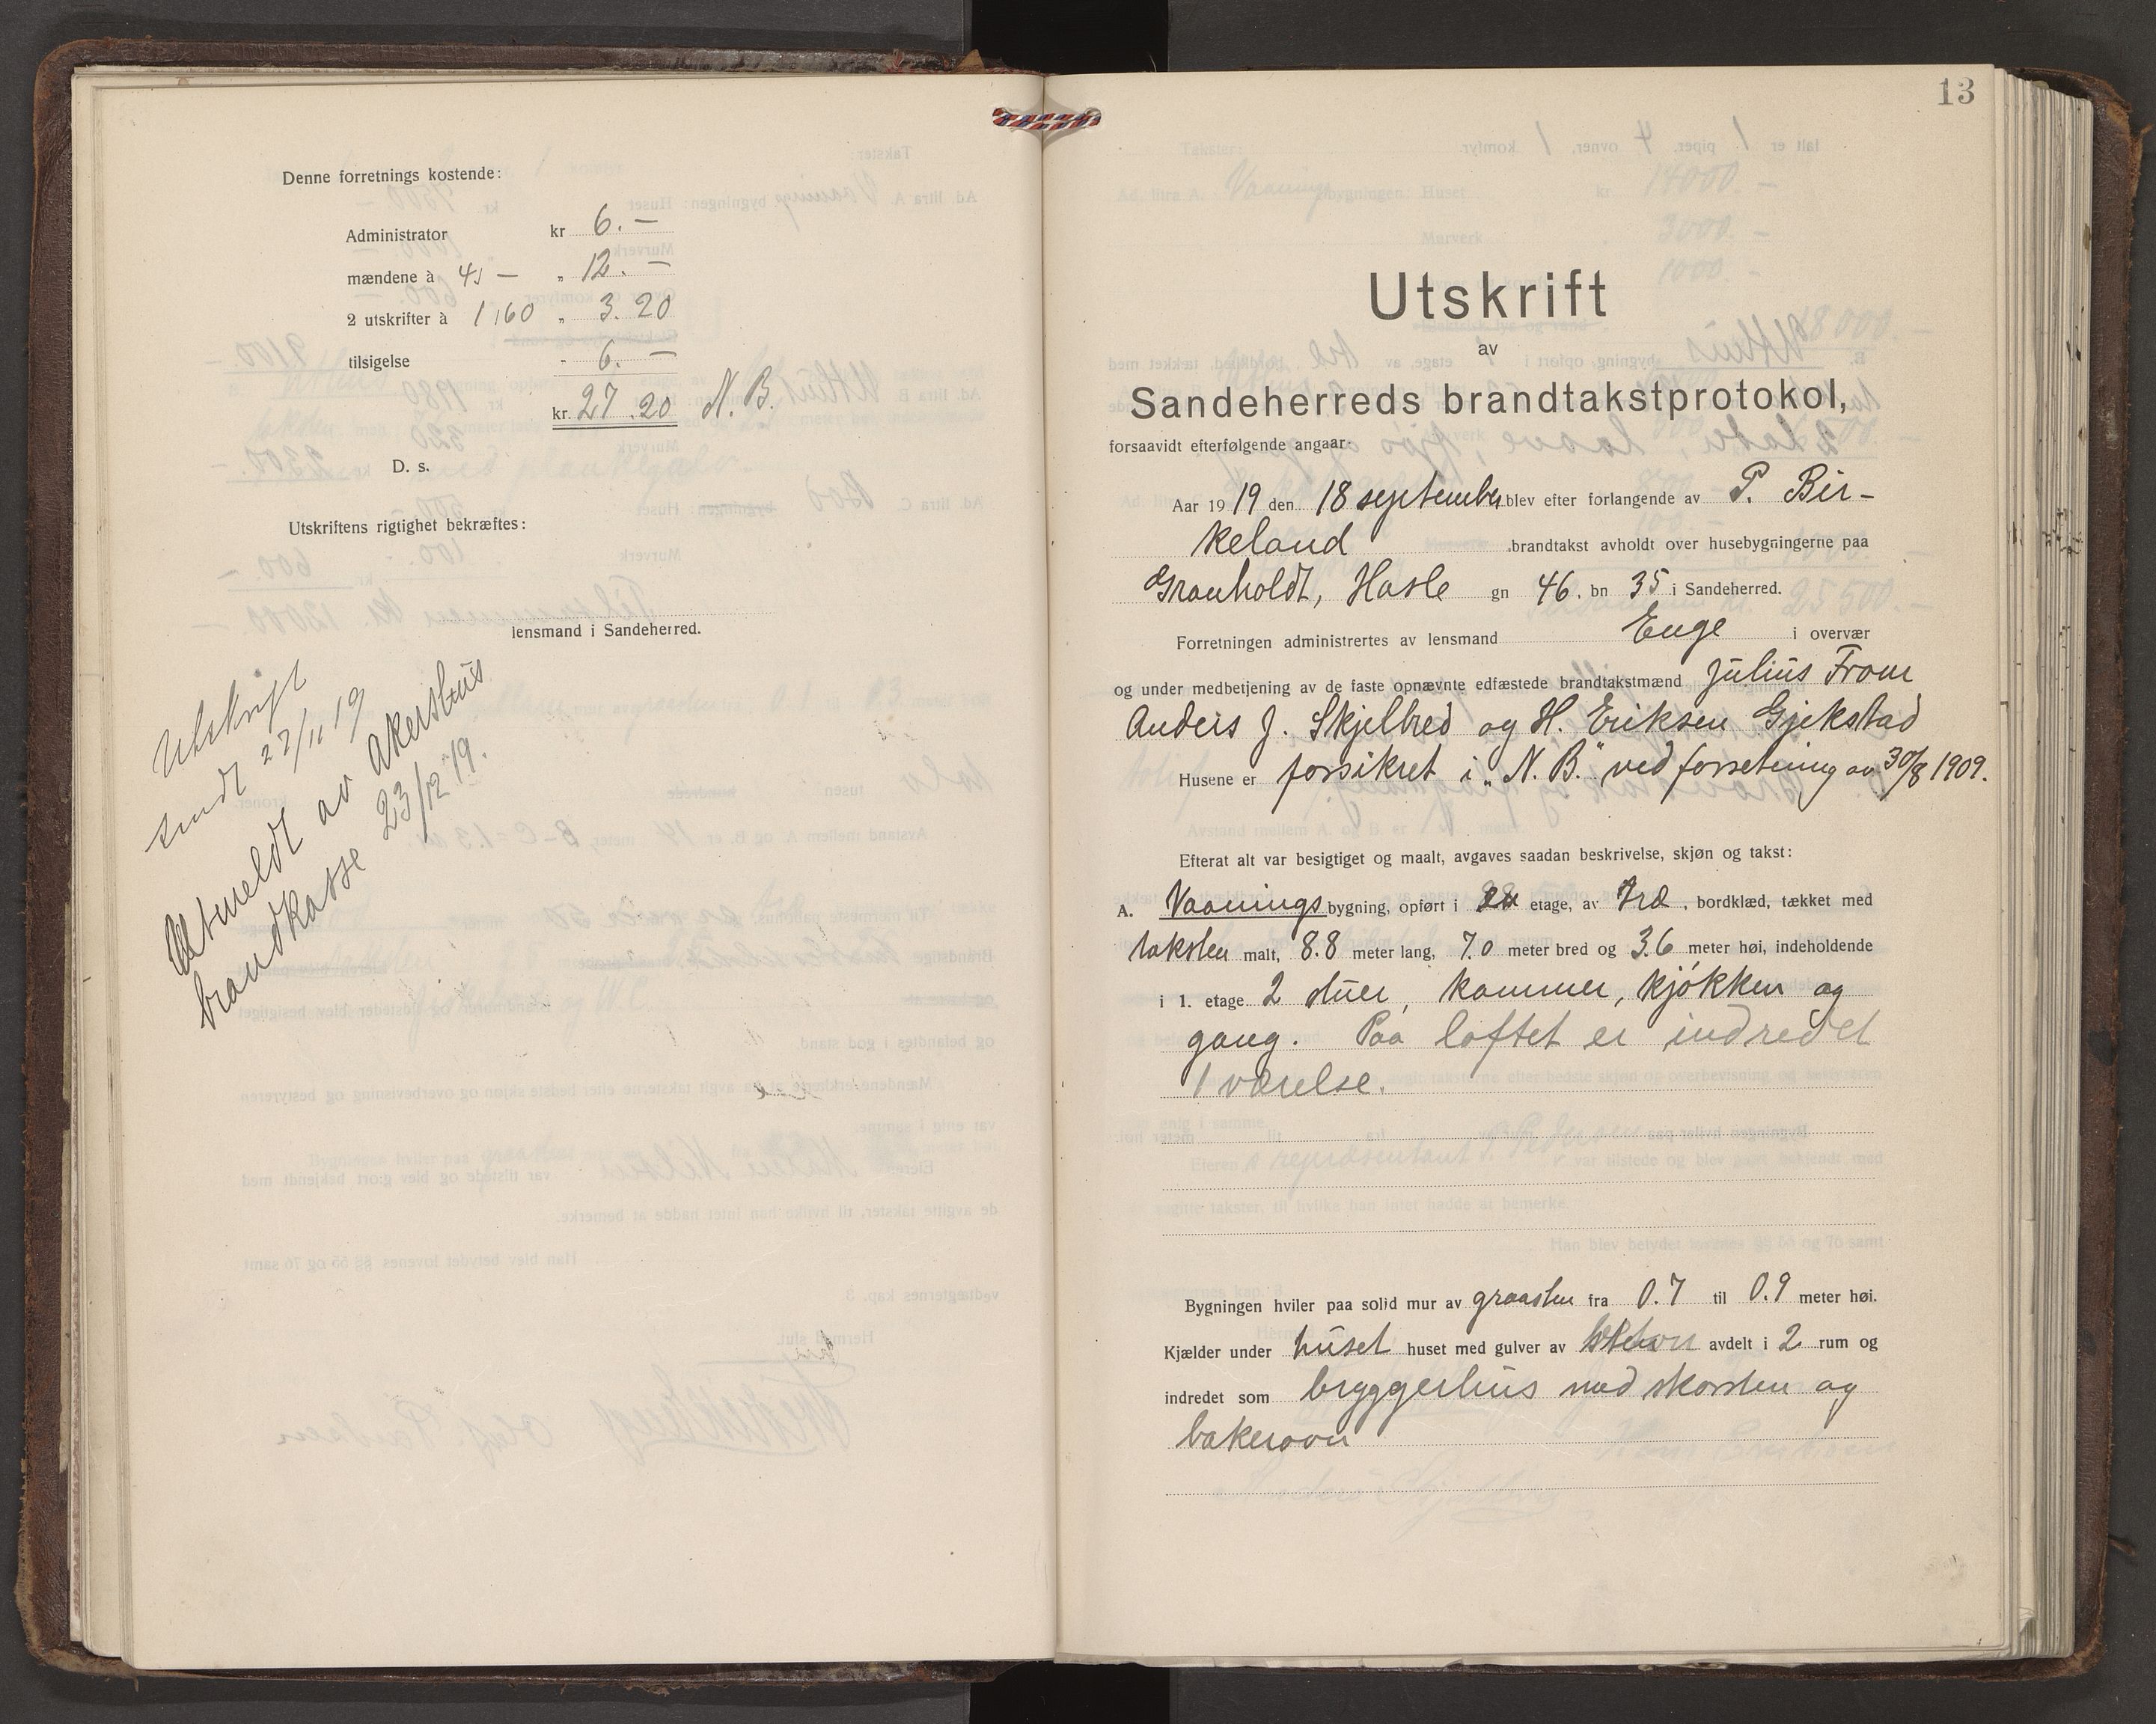 Denne forretnings kostende:
Administrator kr 6. —
mændene à 4, — „ 12. —
2 utskrifter à 1,60 „ 3. 20
tilsigelse - 6. —
kr. 27.20 N. B.
D. s.
Utskriftens rigtighet bekræftes:
lensmand i Sandeherred.
Utskrift
sendt 27/11 19
Utmeldt av Akershus
brandkasse 23/12 19.
13
Utskrift
av
Sandeherreds brandtakstprotokol,
forsaavidt efterfølgende angaar:
Aar 1919 den 18 september blev efter forlangende av P. Bir-
keland brandtakst avholdt over husebygningerne paa
Granholdt, Hasle gn 46. bn 35 i Sandeherred.
Forretningen administrertes av lensmand Enge i overvær
og under medbetjening av de faste opnævnte edfæstede brandtakstmænd Julius From
Anders J. Skjelbred og H. Eriksen Gjekstad
Husene er forsikret i „N. B." ved forretning av 30/8 1909.
Efterat alt var besigtiget og maalt, avgaves saadan beskrivelse, skjøn og takst:
A. Vaanings bygning, opført i en etage, av træ, bordklæd, tækket med
taksten malt, 8.8 meter lang, 7.0 meter bred og 3.6 meter høi, indeholdende
i 1. etage 2 stuer, kammer, kjøkken og
gang. Paa loftet er indredet
1 værelse.
Bygningen hviler paa solid mur av graasten fra 0.7 til 0.9 meter høi.
Kjælder under huset huset med gulver av avdelt i 2 rum og
indredet som bryggerhus med skorsten og
bakerovn